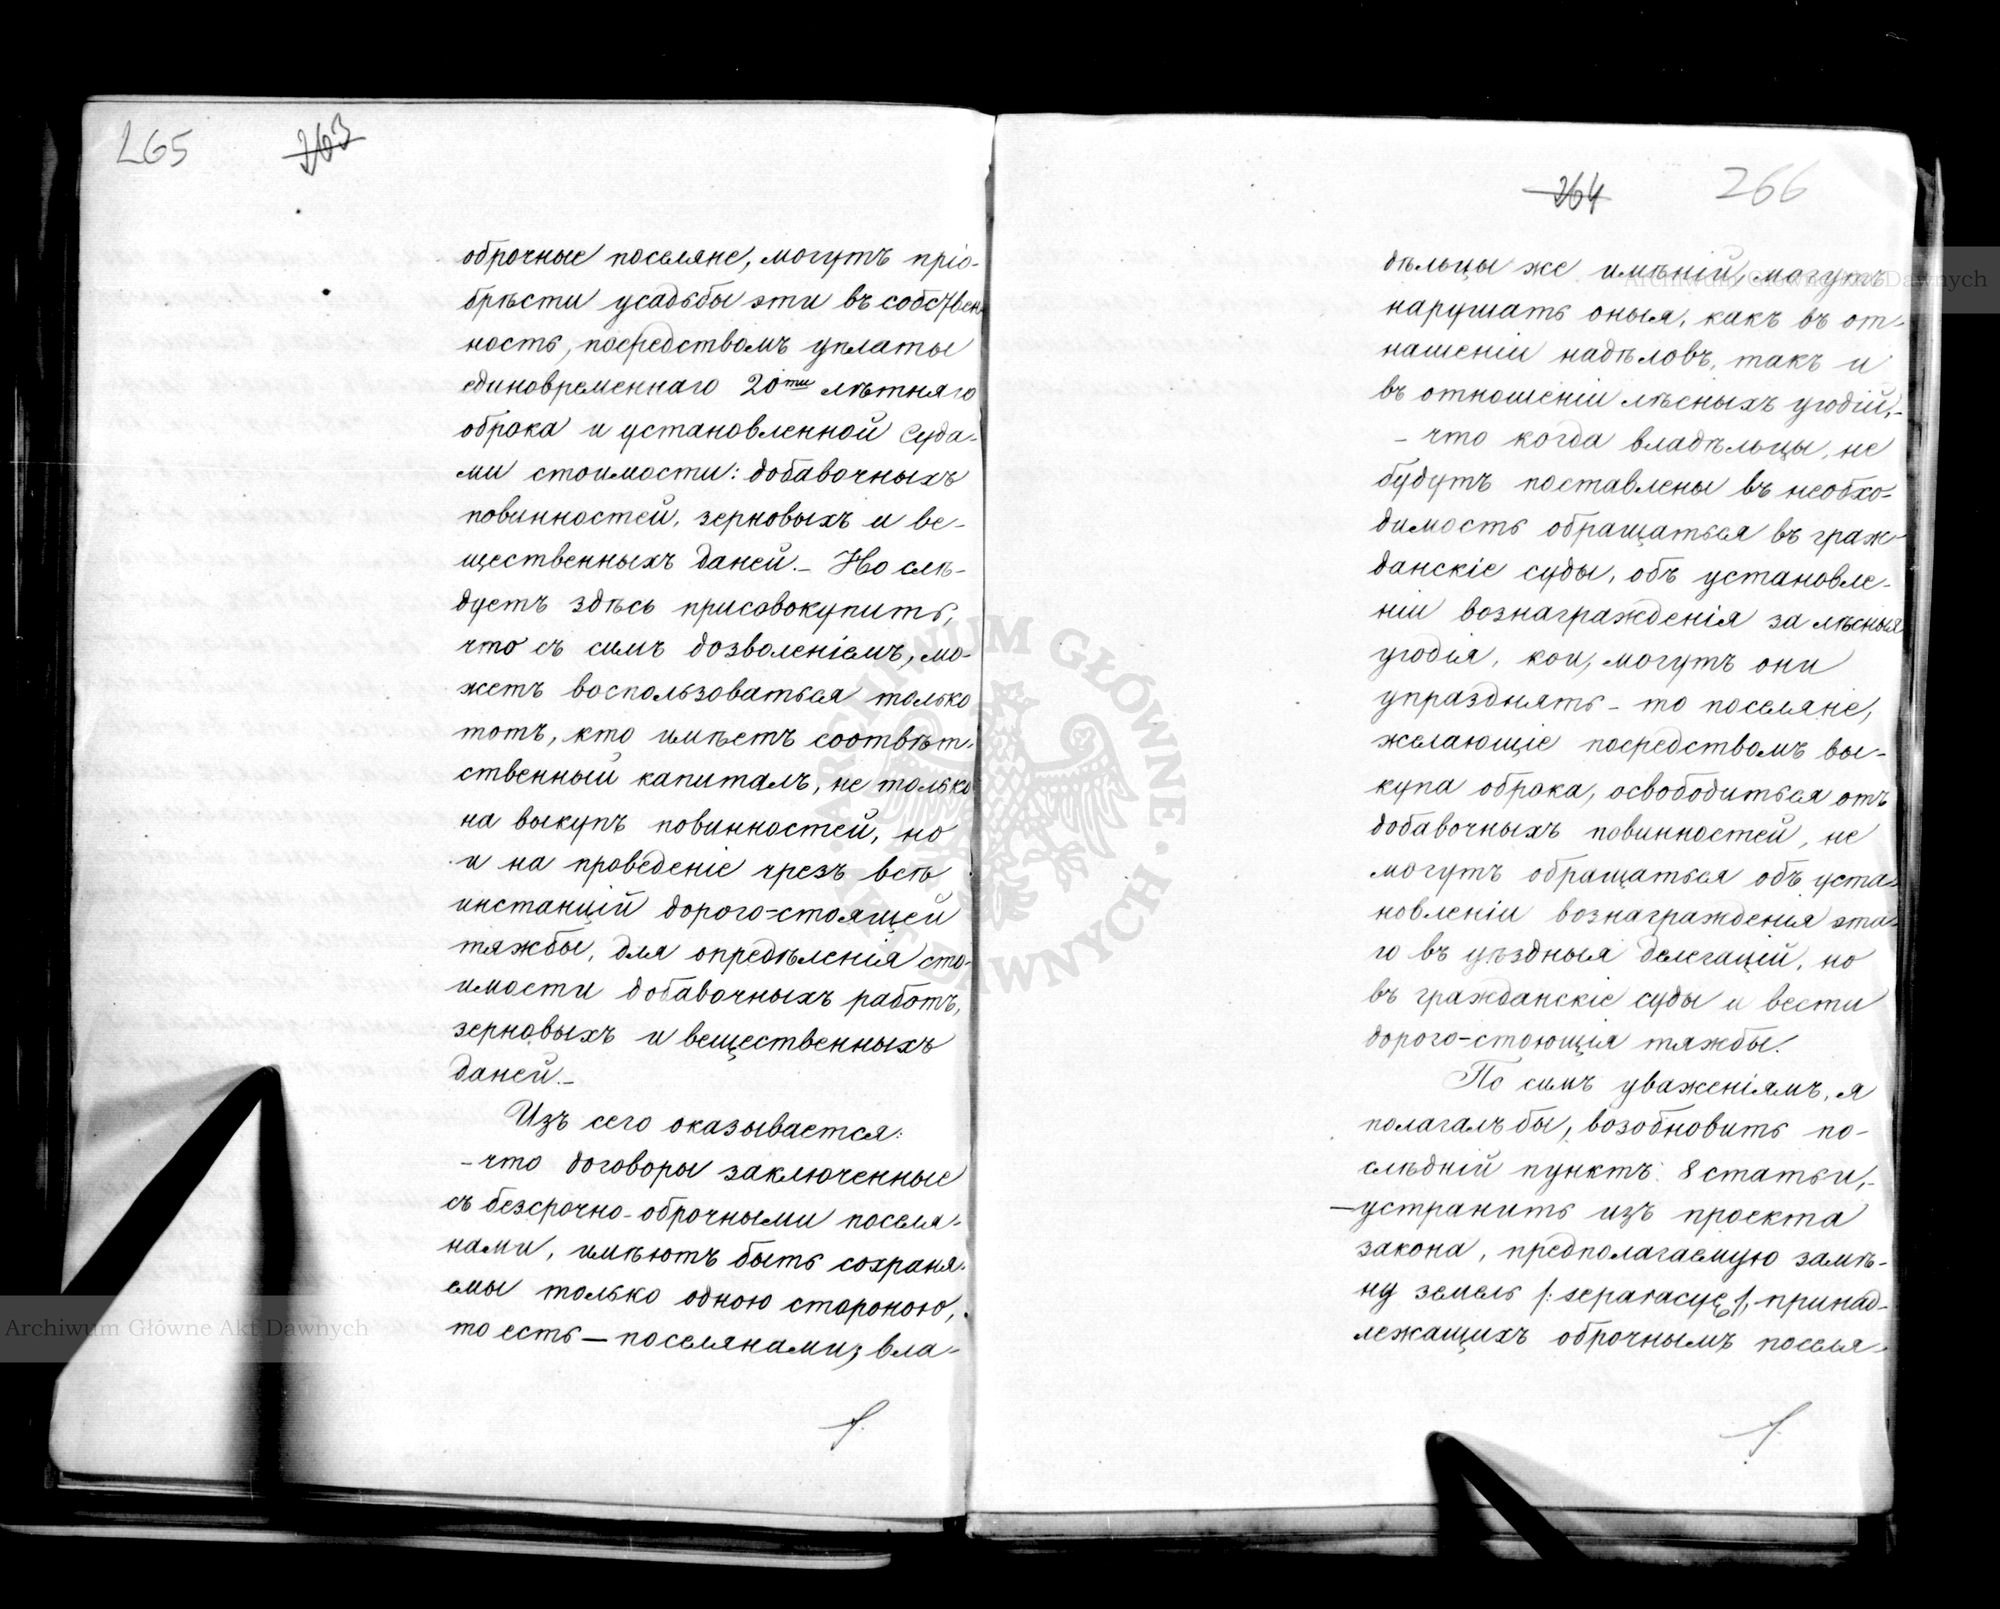 265 263
оброчные поселяне, могутъ пріо-
брѣсти усадьбы эти въ собствен
ность, посредствомъ уплаты
единовременнаго 20ти лѣтняго
оброка и установленной суда-
ми стоимости: добавочныхъ
повинностей, зерновыхъ и ве-
щественныхъ даней.– Но слѣ-
дуетъ здѣсь присовокупить,
что съ симъ дозволеніемъ, мо-
жетъ воспользоваться только
тотъ, кто имѣетъ соотвѣт-
ственный капиталъ, не только
на выкупъ повинностей, но
и на проведеніе чрезъ всѣ
инстанцій дорого-стоящей
тяжбы, для опредѣленія сто-
имости добавочныхъ работъ,
зерновыхъ и вещественныхъ
даней.–
Изъ сего оказывается:
– что договоры заключенные
съ безсрочно-оброчными поселя-
нами, имѣютъ быть сохраня-
емы только одною стороною,
то есть – поселянами; вла-
264 266
дѣльцы же имѣній, могутъ
нарушать оныя, какъ въ от-
нашеніи надѣловъ, такъ и
въ отношеніи лѣсныхъ угодій,–
– что когда владѣльцы, не
будутъ поставлены въ необхо-
димость обращаться въ граж-
данскіе суды, объ установле-
ніи вознагражденія за лѣсныя
угодія, кои, могутъ они
упразднять – то поселяне,
желающіе посредствомъ вы-
купа оброка, освободиться отъ
добавочныхъ повинностей, не
могутъ обращаться объ уста-
новленіи вознагражденія эта-
го въ уѣздныя делегацій, но
въ гражданскіе суды и вести
дорого-стоющія тяжбы.
По симъ уваженіямъ, я
полагалъ бы, возобновить по-
слѣдній пунктъ 8 статьи,–
– устранить изъ проекта
закона, предполагаемую замѣ-
ну земель /: separacyę :/, принад-
лежащихъ оброчнымъ поселя-
Archiwum Główne Akt Dawnych
Archiwum Główne Akt Dawnych
ARCHIWUM GŁÓWNE AKT DAWNYCH